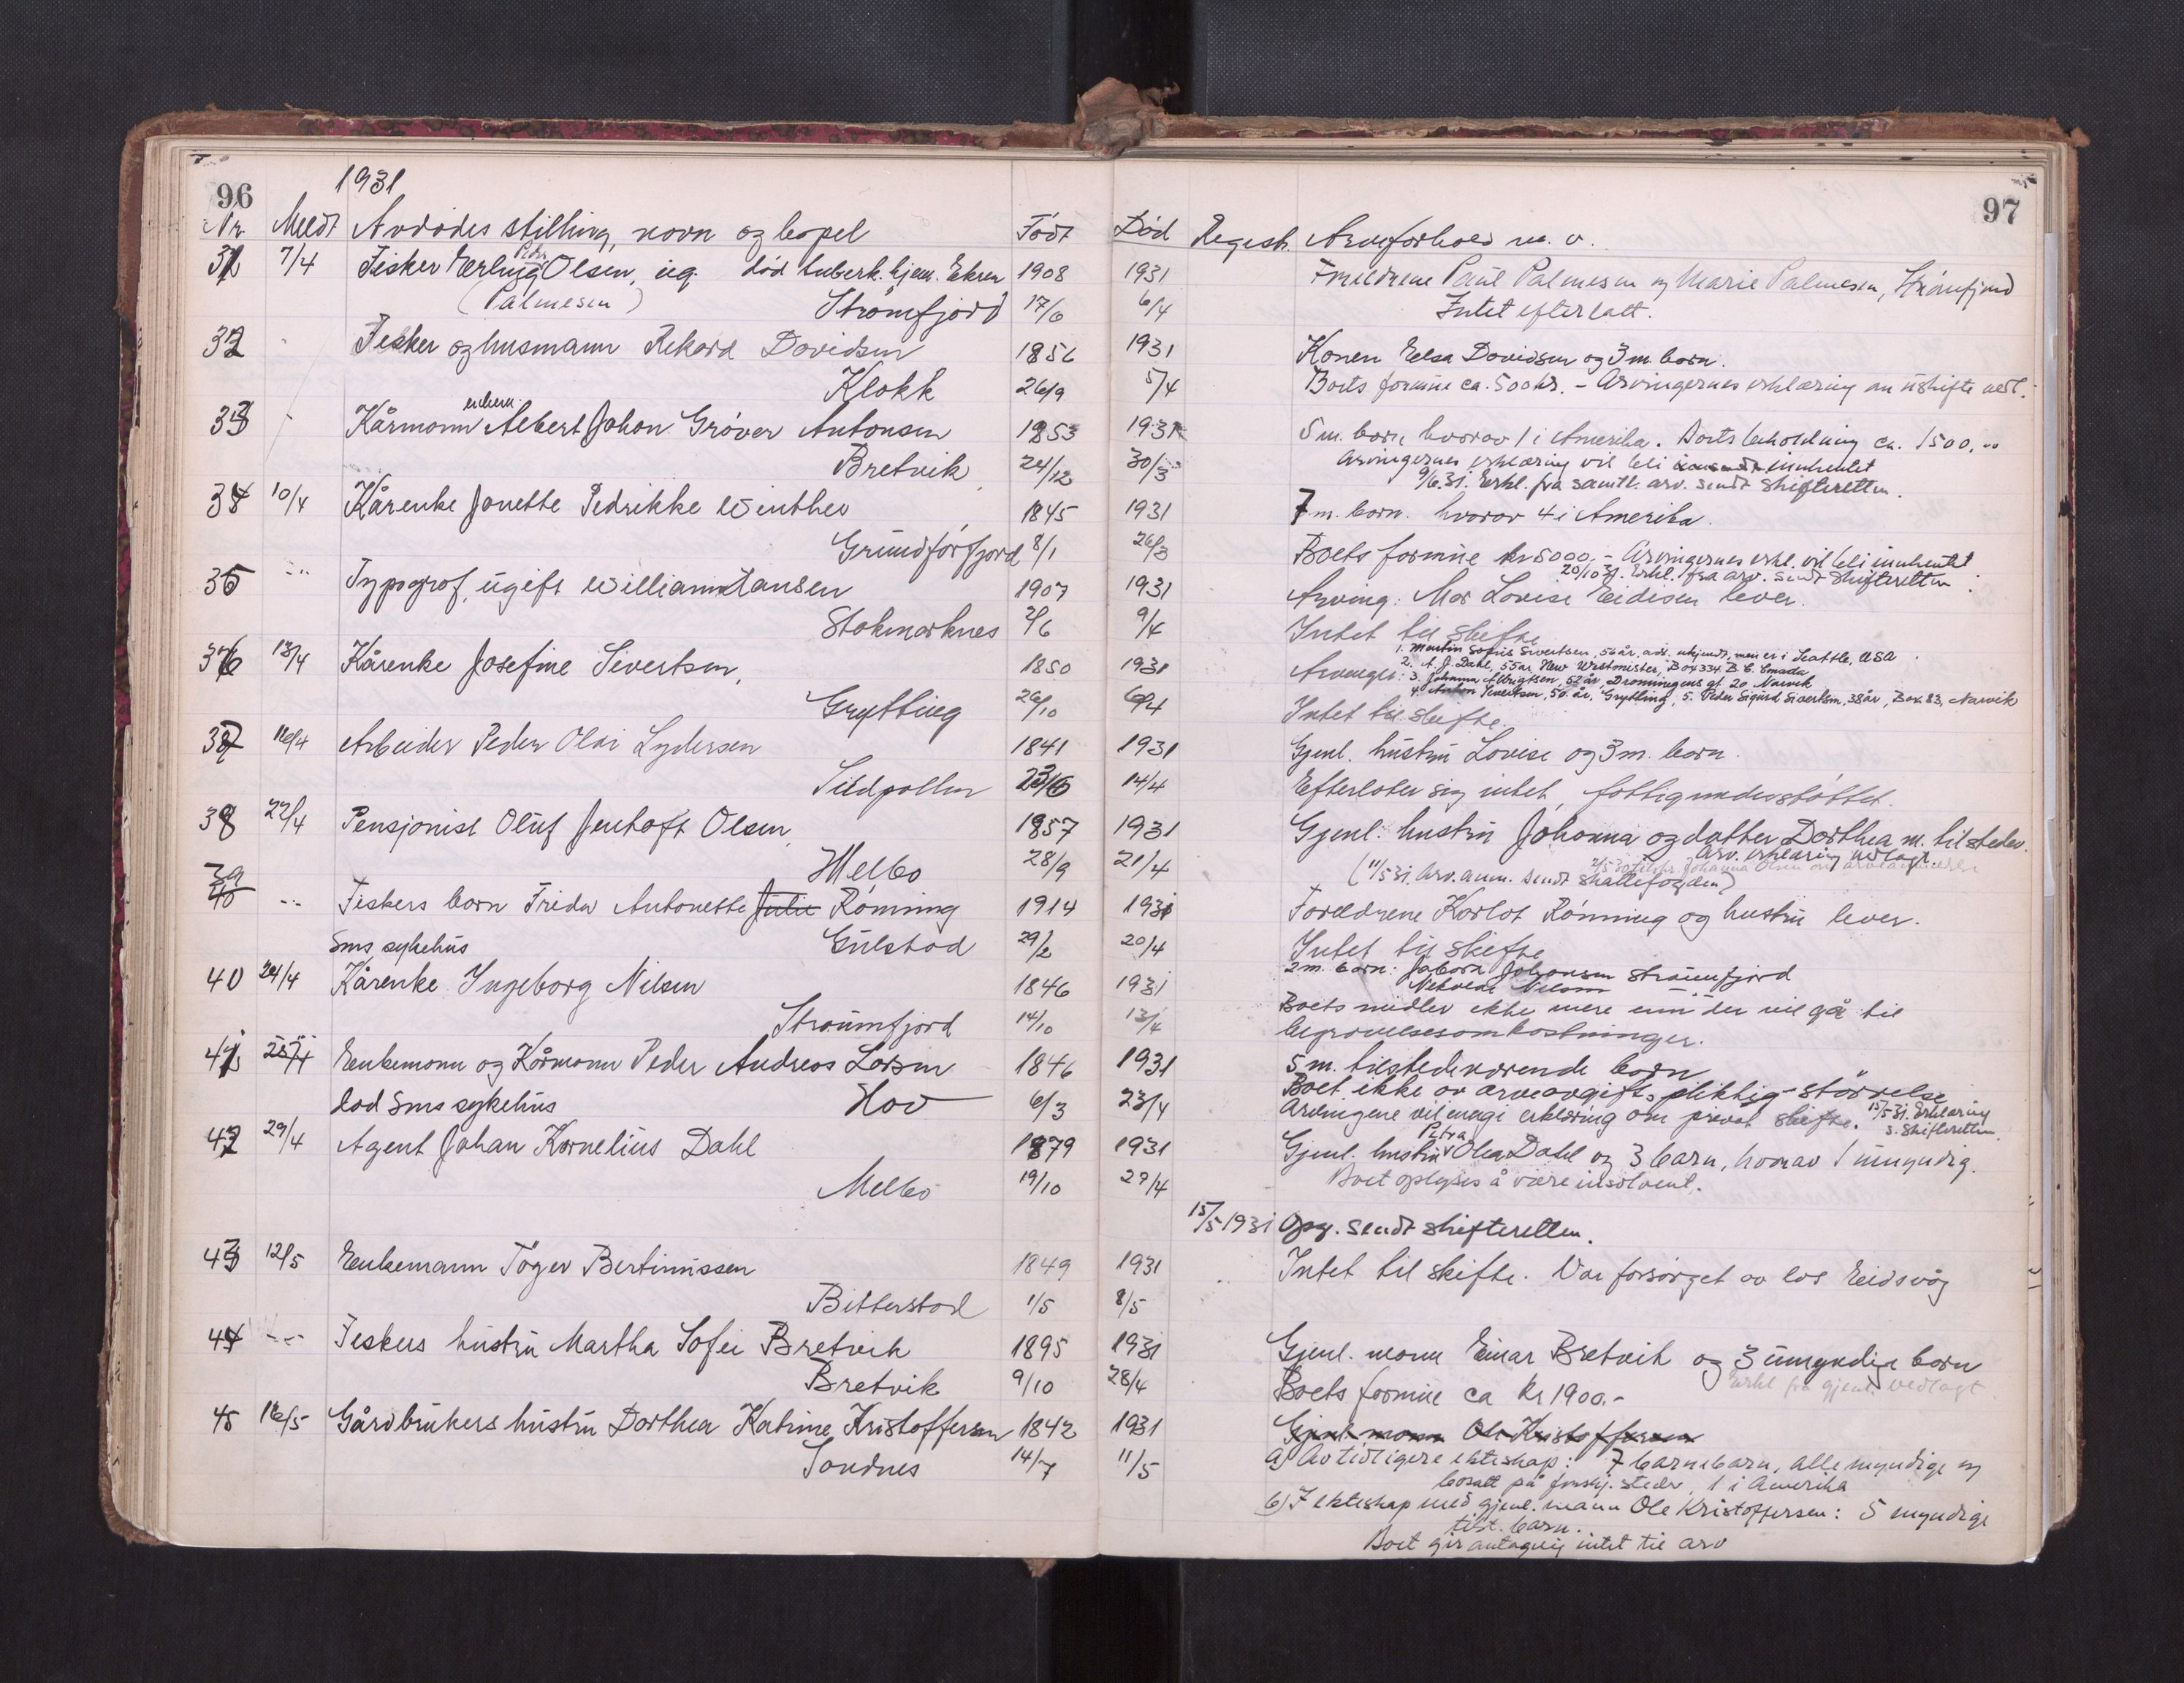 96
1931
Nr. Meldt Avdødes stilling, navn og bopel Født Død Regestr. Arveforhold m. v.
97
31 7/4 Fisker Erling Peder Olsen, ug. død tuberk. hjem. Eknes 1908 1931 Foreldrene Paul Palmesen og Marie Palmesen, Straumfjord
(Palmesen) Straumfjord 17/6 6/4 Intet efterlatt.
32 Fisker og husmann Rikard Davidsen 1856 1931 Konen Elsa Davidsen og 3 m. barn.
Klokk 26/9 5/4 Boets formue ca. 500 kr. - Arvingernes erklæring om uskifte vedl.
33 Kårmann enkem. Albert Johan Grøver Antonsen 1853 1931 5 m. barn hvorav 1 i Amerika. Boets beholdning ca. 1500.00
Bretvik 24/12 30/3 Arvingernes erklæring vil bli innhentet
9/6.31. Erkl. fra samtl. arv. sendt skifteretten.
34 10/4 Kårenke Jonette Pedrikke Winther 1845 1931 7 m. barn. hvorav 4 i Amerika.
Grundforfjord 8/1 26/3 Boets formue kr 5000.- Arvingernes erkl. vil bli innhentet
20/10 31. Erkl. fra arv. sendt skifteretten.
35 -"- Typograf, ugift William Hansen 1907 1931 Arving: Mor Lovise Eidisen lever.
Stokmarknes 2/6 9/4 Intet til skifte
36 13/4 Kårenke Josefine Sivertsen, 1850 1931
1. Martin Sofus Sivertsen, 56 år, adr. ukjendt, men er i Seattle, USA.
2. A. J. Dahl, 55 år, New Westmister, Box 334 B. C. Canada
Arvinger: 3. Johanna Albrigtsen, 52 år, Dronningens gt. 20 Narvik
4. Anton Sivertsen, 50 år, Grytting, 5. Peder Sigurd Sivertsen, 38 år, Box 83, Narvik
Grytting 26/10 6/4 Intet til skifte.
37 16/4 Arbeider Peder Olai Lydersen 1841 1931 Gjenl. hustru Lovise og 3 m. barn.
Sildpollen 23/6 14/4 Efterlater sig intet, fattigunderstøttet.
38 22/4 Pensjonist Oluf Jentoft Olsen, 1857 1931 Gjenl. hustru Johanna og datter Dorthea m. tilstede.
Arv. erklæring vedlagt.
Melbo 28/9 21/4 (11/5 31. Arv. anm. sendt skattefogden)
39 -"- Fiskers barn Frida Antonette Julie Rønning 1914 1931 Foreldrene Karlot Rønning og hustru lever.
Sms sykehus Gulstad 29/2 20/4 Intet til skifte
40 24/4 Kårenke Ingeborg Nilsen 1846 1931 2 m. barn: Jakora Johansen Straumfjord
Nekolai Nilsen -"-
Straumfjord 14/10 13/4 Boets midler ikke mere enn der vil gå til
begravelsesomkostninger.
41 25/4 Enkemann og Kårmann Peder Andreas Larsen 1846 1931 5 m. tilstedeværende barn
død Sms sykehus Hov 6/3 23/4 Boet ikke av arveavgiftspliktig størrelse
Arvingene vil inngi erklæring om privat skifte. 15/5 31. Erklæring s. skifteretten.
42 29/4 Agent Johan Kornelius Dahl 1879 1931 Gjenl. hustru Petra Olea Dahl og 3 barn, hvorav 1 umyndig.
Melbo 19/10 27/4 Boet oplyses å være insolvent.
15/5 1931 Opg. sendt skifteretten.
43 12/5 Enkemann Tøger Bertinussen 1849 1931 Intet til skifte. Var forsørget av los Eidsvåg
Bitterstad 1/5 8/5
44 -"- Fiskers hustru Martha Sofie Bretvik 1895 1931 Gjenl. mann Einar Bretvik og 3 umyndige barn
Bretvik 9/10 28/4 Boets formue ca kr 1900.- Erkl fra gjenl. vedlagt
45 16/5 Gårdbrukers hustru Dorthea Katrine Kristoffersen 1842 1931 Gjenl. mann Ole Kristoffersen
Sandnes 14/7 11/5 a) Av tidligere ekteskap: 7 barnebarn, alle myndige og
bosatt på forskj. steder, 1 i Amerika
b) I ekteskap med gjenl. mann Ole Kristoffersen: 5 myndige
tilst. barn.
Boet gir antagelig intet til arv